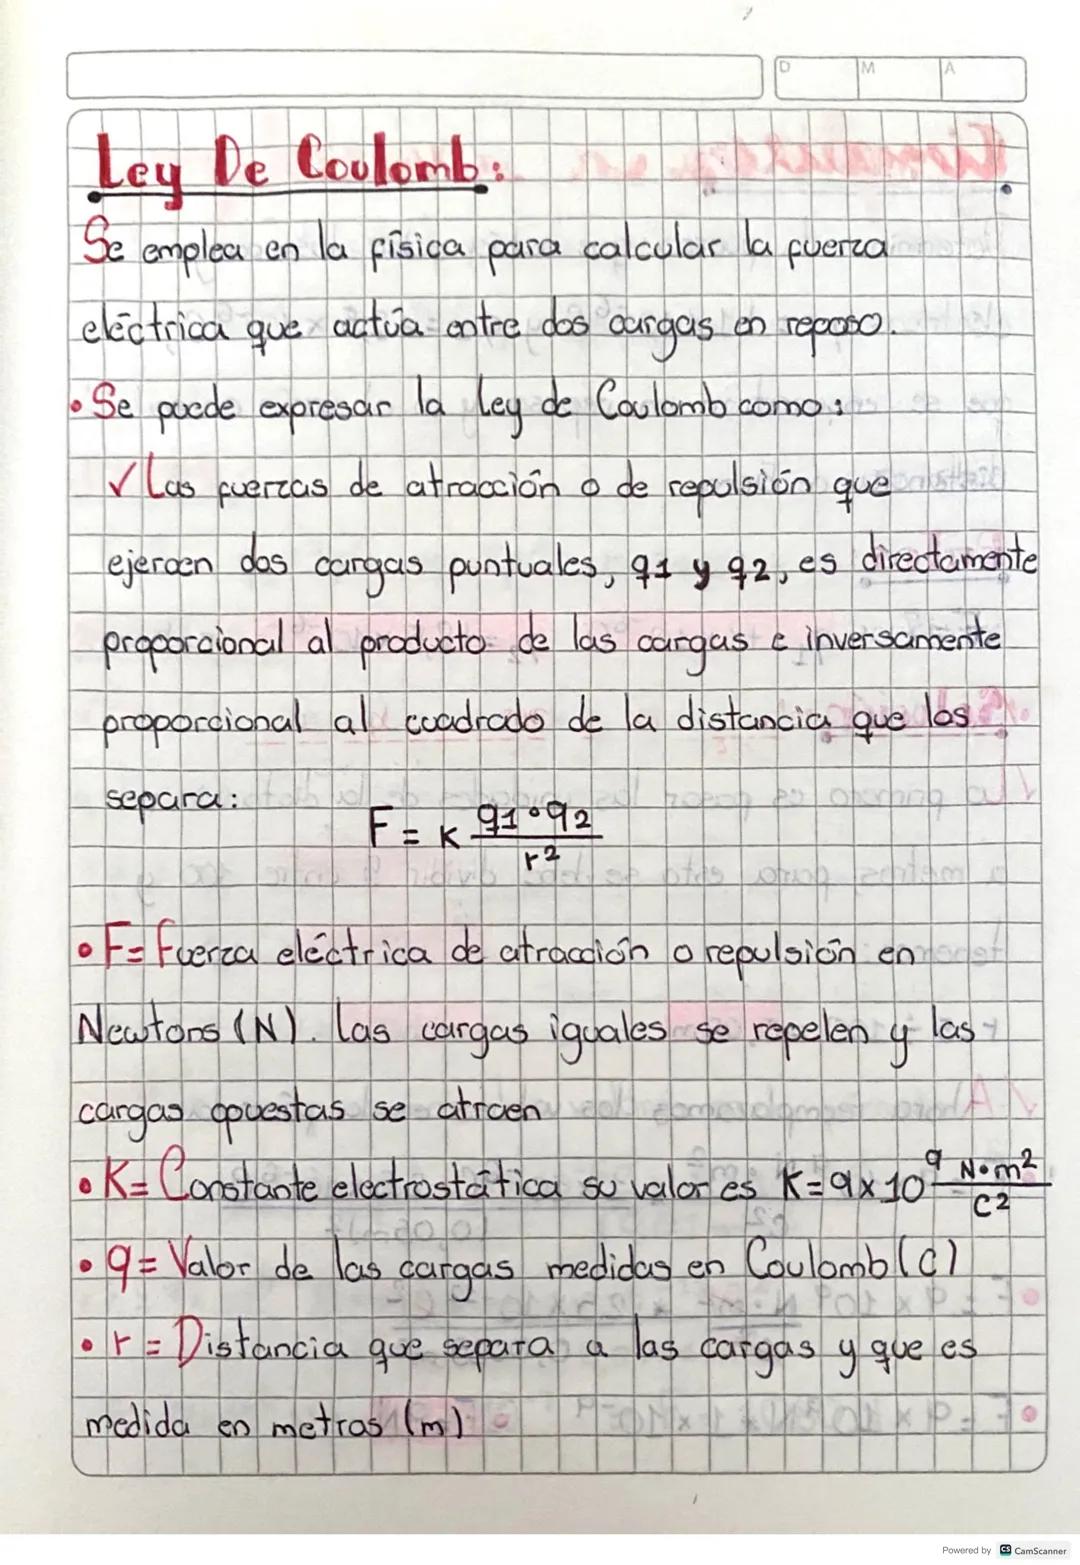 D M A
Ley De Coulomb:
Se emplea en la física para calcular la fuerza
eléctrica que actúa entre dos cargas en reposo.
• Se puede expresar la Ley de Coulomb como:
✓ Las fuerzas de atracción o de repulsión que
ejercen dos cargas puntuales, q1 y q2, es directamente
proporcional al producto de las cargas e inversamente
proporcional al cuadrado de la distancia que los
separa:
F = K q1 • q2 / r²
• F = Fuerza eléctrica de atracción o repulsión en
Newtons (N). Las cargas iguales se repelen y las
cargas opuestas se atraen
• K = Constante electrostática su valor es K = 9 x 10⁹ N•m² / C²
• q = Valor de las cargas medidas en Coulomb (C)
• r = Distancia que separa a las cargas y que es
medida en metros (m)
Powered by CS CamScanner